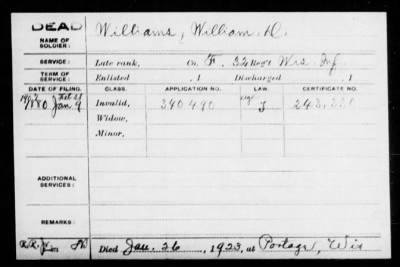 DEAD
NAME OF SOLDIER: Williams, William D.
SERVICE: Late rank, Co. F. 32 Reg't Wis. Inf.
TERM OF SERVICE: Enlisted , 1 Discharged , 1
DATE OF FILING. CLASS. APPLICATION NO. LAW. CERTIFICATE NO.
1880 Jan 9 Invalid, 340490
Widow,
Minor,
ADDITIONAL SERVICES:
REMARKS:
Died Jan. 26, 1923, at Portage, Wis